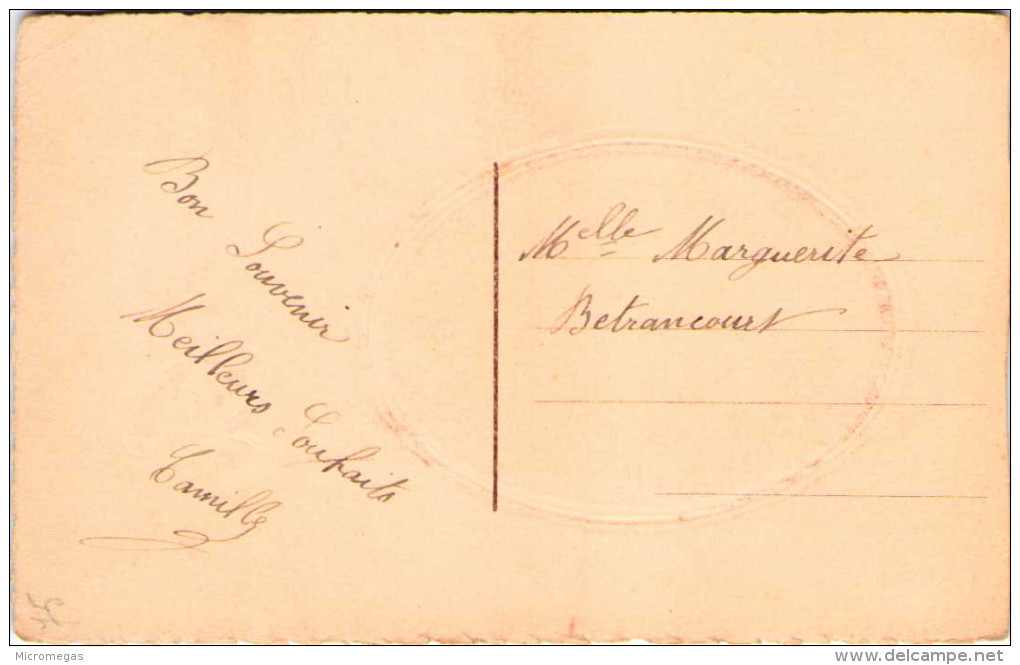 Bon
Souvenir
Meilleurs Souhaits
Camille
Melle Marguerite
Betrancourt
Micromegas
www.delcampe.net